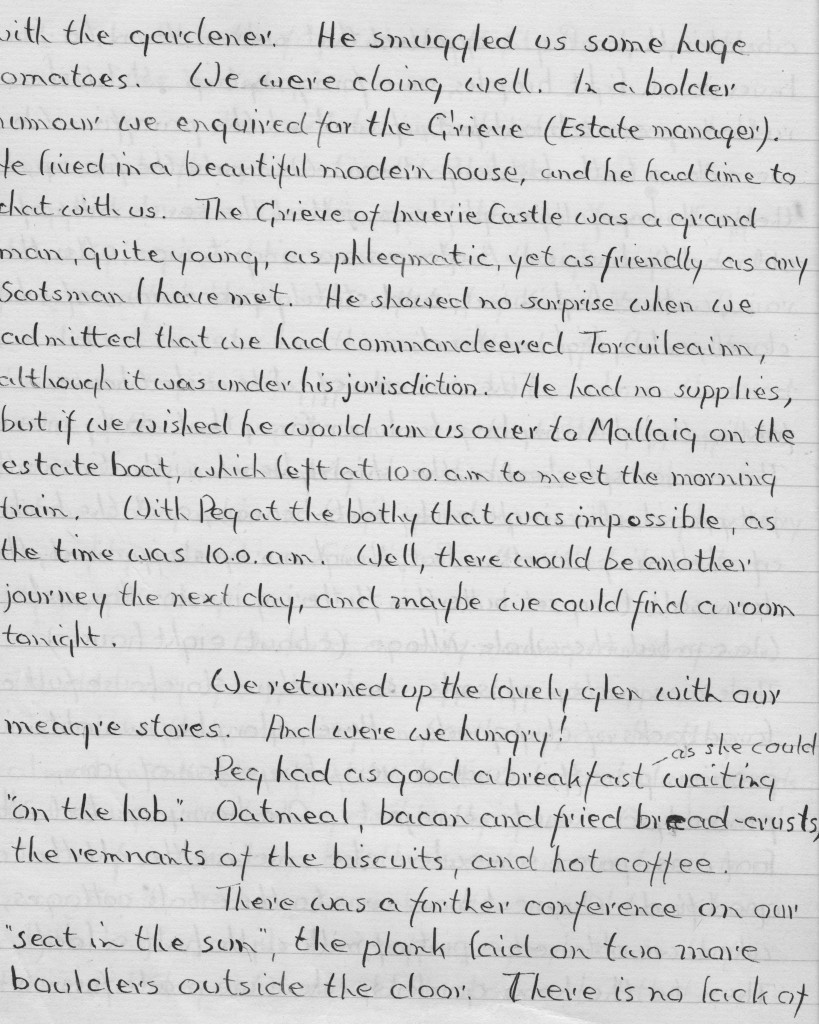 with the gardener. He smuggled us some huge
omatoes. We were doing well. In a bolder
umour we enquired for the Grieve (Estate manager).
He lived in a beautiful modern house, and he had time to
chat with us. The Grieve of Inverie Castle was a grand
man, quite young, as phlegmatic, yet as friendly as any
Scotsman I have met. He showed no surprise when we
admitted that we had commandeered Torcuileainn,
although it was under his jurisdiction. He had no supplies,
but if we wished he would run us over to Mallaig on the
estate boat, which left at 10.0. am to meet the morning
train. With Peg at the bothy that was impossible, as
the time was 10.0. a.m. Well, there would be another
journey the next day, and maybe we could find a room
tonight.
We returned up the lovely glen with our
meagre stores. And were we hungry!
as she could
Peg had as good a breakfast waiting
"on the hob". Oatmeal, bacon and fried bread-crusts,
the remnants of the biscuits, and hot coffee.
There was a further conference on our
"seat in the sun", the plank laid on two more
boulders outside the door. There is no lack of